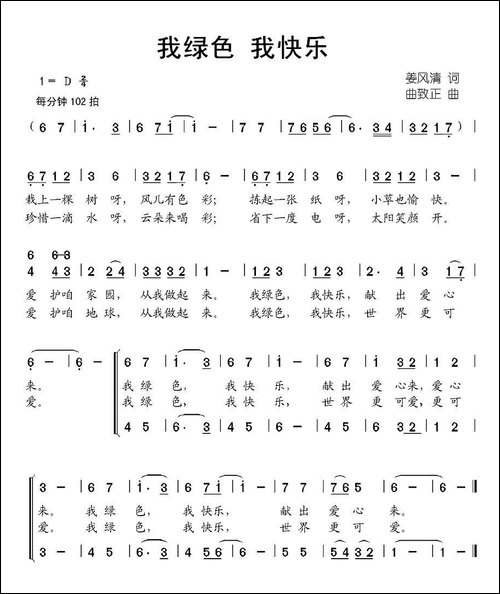 我绿色 我快乐
1= D 调
姜风清 词
每分钟 102 拍
曲致正 曲
( 6 7 | i· 3 | 6 7 i i | i - | 7 7 | 7 6 5 6 5 6 | 6· 3 4 | 3 2 1 7 ) |
6 7 1 2 | 3 3 | 3 2 1 7 | 6 - | 6 7 1 2 | 3 6 | 3 2 1 2 | 3 - |
栽上一棵 树 呀, 风儿有色 彩; 拣起一张 纸 呀, 小草也愉 快。
珍惜一滴 水 呀, 云朵来喝 彩; 省下一度 电 呀, 太阳笑颜 开。
6 6 3
4 4 3 | 2 2 4 | 3 3 3 2 | 1 - | 1 2 3 | 3 1 2 | 2· 4 | 3 1 7 |
爱 护咱 家 园, 从我做起 来。 我绿色, 我快乐, 献 出 爱 心
爱 护咱 地 球, 从我做起 来。 我绿色, 我快乐, 世 界 更 可
6 - | 6 - | 6 7 | i· 3 | 6 7 i | i - | 6 7 | i 3 2 | 1 2 |
来。 我 绿 色, 我 快 乐, 献 出 爱 心来, 爱 心
爱。 我 绿 色, 我 快 乐, 世 界 更 可爱, 更 可
4 5 | 6· 3 | 4 5 6 | 6 - | 4 5 | 6 3 2 | 1 2 |
3 - | 6 7 | i· 3 | 6 7 i | i - | 7 7 | 7 6 5 | 6 - | 6 - ‖
来。 我 绿 色, 我 快乐, 献 出 爱 心 来。
爱。 我 绿 色, 我 快乐, 世 界 更 可 爱。
3 - | 4 5 | 6· 3 | 4 5 6 | 6 - | 5 5 | 5 4 3 2 | 1 - | 1 - ‖